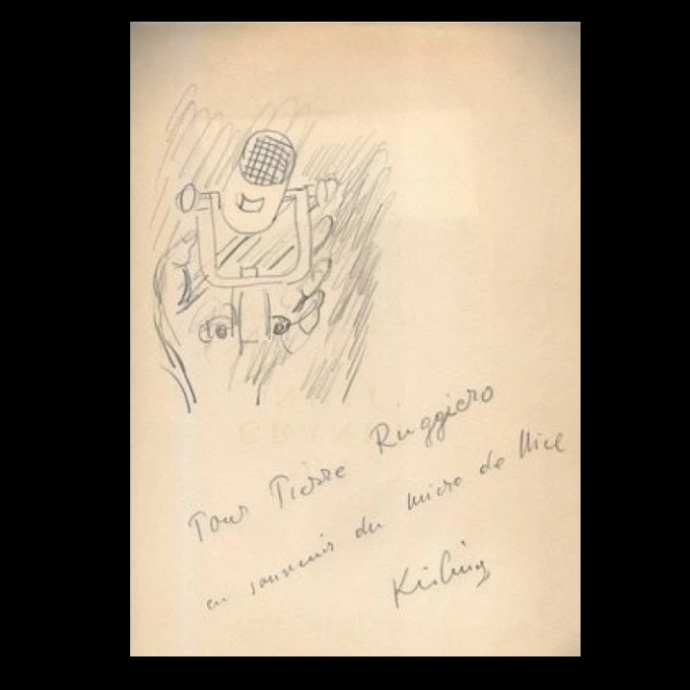 Pour Pierre Ruggiero
en souvenir du micro de Nice
Kisling